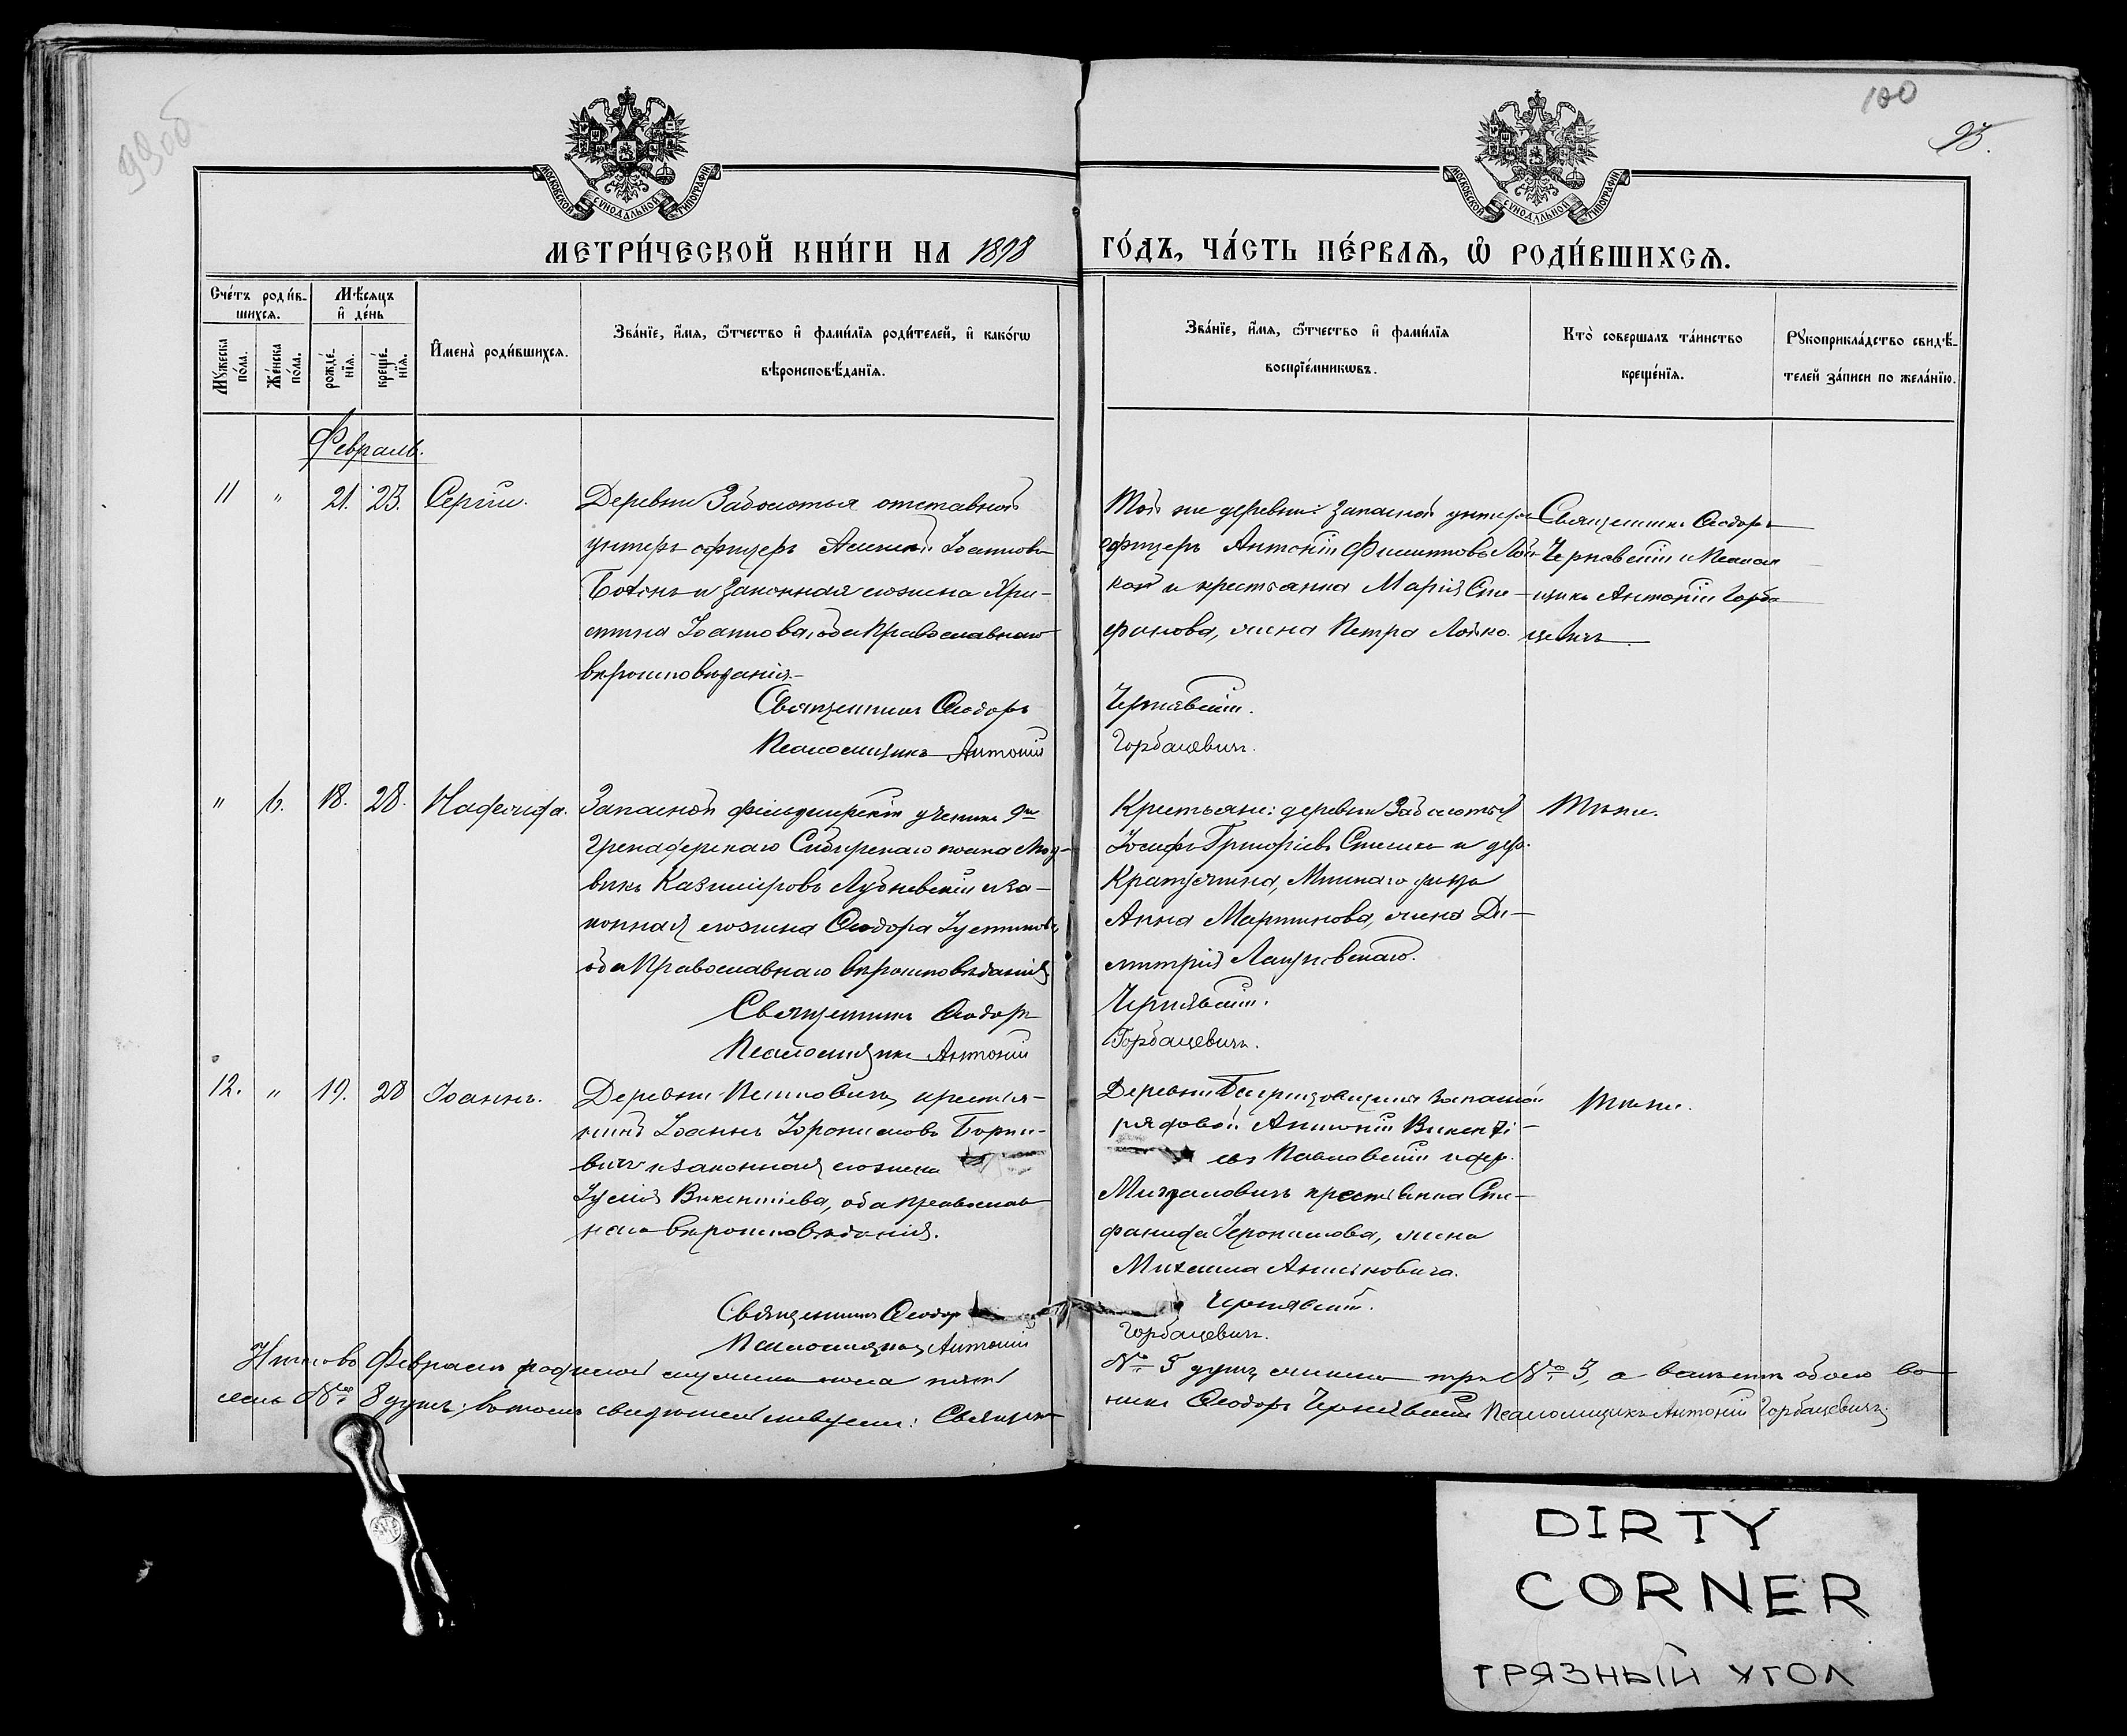 99об
100
95.
МОСКОВСКОЙ СѴНОДАЛЬНОЙ ТИПОГРАФІИ
МОСКОВСКОЙ СѴНОДАЛЬНОЙ ТИПОГРАФІИ
МЕТРИ́ЧЕСКОЙ КНИ́ГИ НА 1898
ГО́ДЪ, ЧА́СТЬ ПЕ́РВАЯ, Ѽ РОДИ́ВШИХСЯ.
Сче́тъ роди́в-
шихся.
Мѣ́сяцъ
и҆ де́нь
Мꙋжеска по́ла.
Же́нска по́ла.
рожде́-нїя.
креще́-нїя.
И҆мена̀ роди́вшихся.
Зва́нїе, и҆́мя, ѻ҆́тчество и҆ фами́лїя роди́телей, и҆ како́гѡ
вѣроисповѣ́данїя.
Зва́нїе, и҆́мя, ѻ҆́тчество и҆ фами́лїя
воспрїе́мникѡвъ.
Кто̀ совершалъ та́инство
креще́нїя.
Рꙋкоприкла́дство свидѣ́-
телей за́писи по жела́нїю.
Февраль.
11 " 21. 23. Сергій.
Деревни Заболотья отставной
унтеръ-офицеръ Алексѣй Іоанновъ
и законная его жена Хри-
стина Іоаннова, оба Православнаго
вѣроисповѣданія.
Священникъ Ѳеодоръ
Псаломщикъ Антоній
Той же деревни запасной унтеръ-
офицеръ Антоній Филипповъ Лой-
ко и крестьянка Марія Сте-
фанова, жена Петра Лойко.
Чернявскій.
Горбацевичъ.
Священникъ Ѳеодоръ
Чернявскій и Псалом-
щикъ Антоній Горба-
цевичъ.
" 6. 18. 28. Надежда.
Запасной фельдшерскій ученикъ 9го
Гренадерскаго Сибирскаго полка Люд-
викъ Казиміровъ и за-
конная его жена Ѳеодора Іустинова,
оба Православнаго вѣроисповѣданія
Священникъ Ѳеодоръ
Псаломщикъ Антоній
Крестьяне: деревни Заболотья
Іосифъ Григоріевъ и дер.
Анна Мартинова, жена Ди-
митрія
Чернявскій.
Горбацевичъ.
Тѣже.
12. " 19. 28 Іоаннъ.
Деревни крестья-
нинъ Іоаннъ Іеронимовъ
и законная его жена
Іулія Викентіева, оба Православ-
наго вѣроисповѣданія.
Священникъ Ѳеодоръ
Псаломщикъ Антоній
Деревни запасной
рядовой Антоній Викенті-
евъ Павловскій и дер.
крестьянка Сте-
фанида Іеронимова, жена
Михаила
Чернявскій.
Горбацевичъ.
Тѣже.
Итого въ Февралѣ родилось мужеска пола пять
№ 5 душъ женска три № 3, а всего обоего во-
семь № 8 душъ; въ томъ свидѣтельствуемъ: Священ-
никъ Ѳеодоръ Чернявскій Псаломщикъ Антоній Горбацевичъ.
DIRTY
CORNER
ГРЯЗНЫЙ УГОЛ